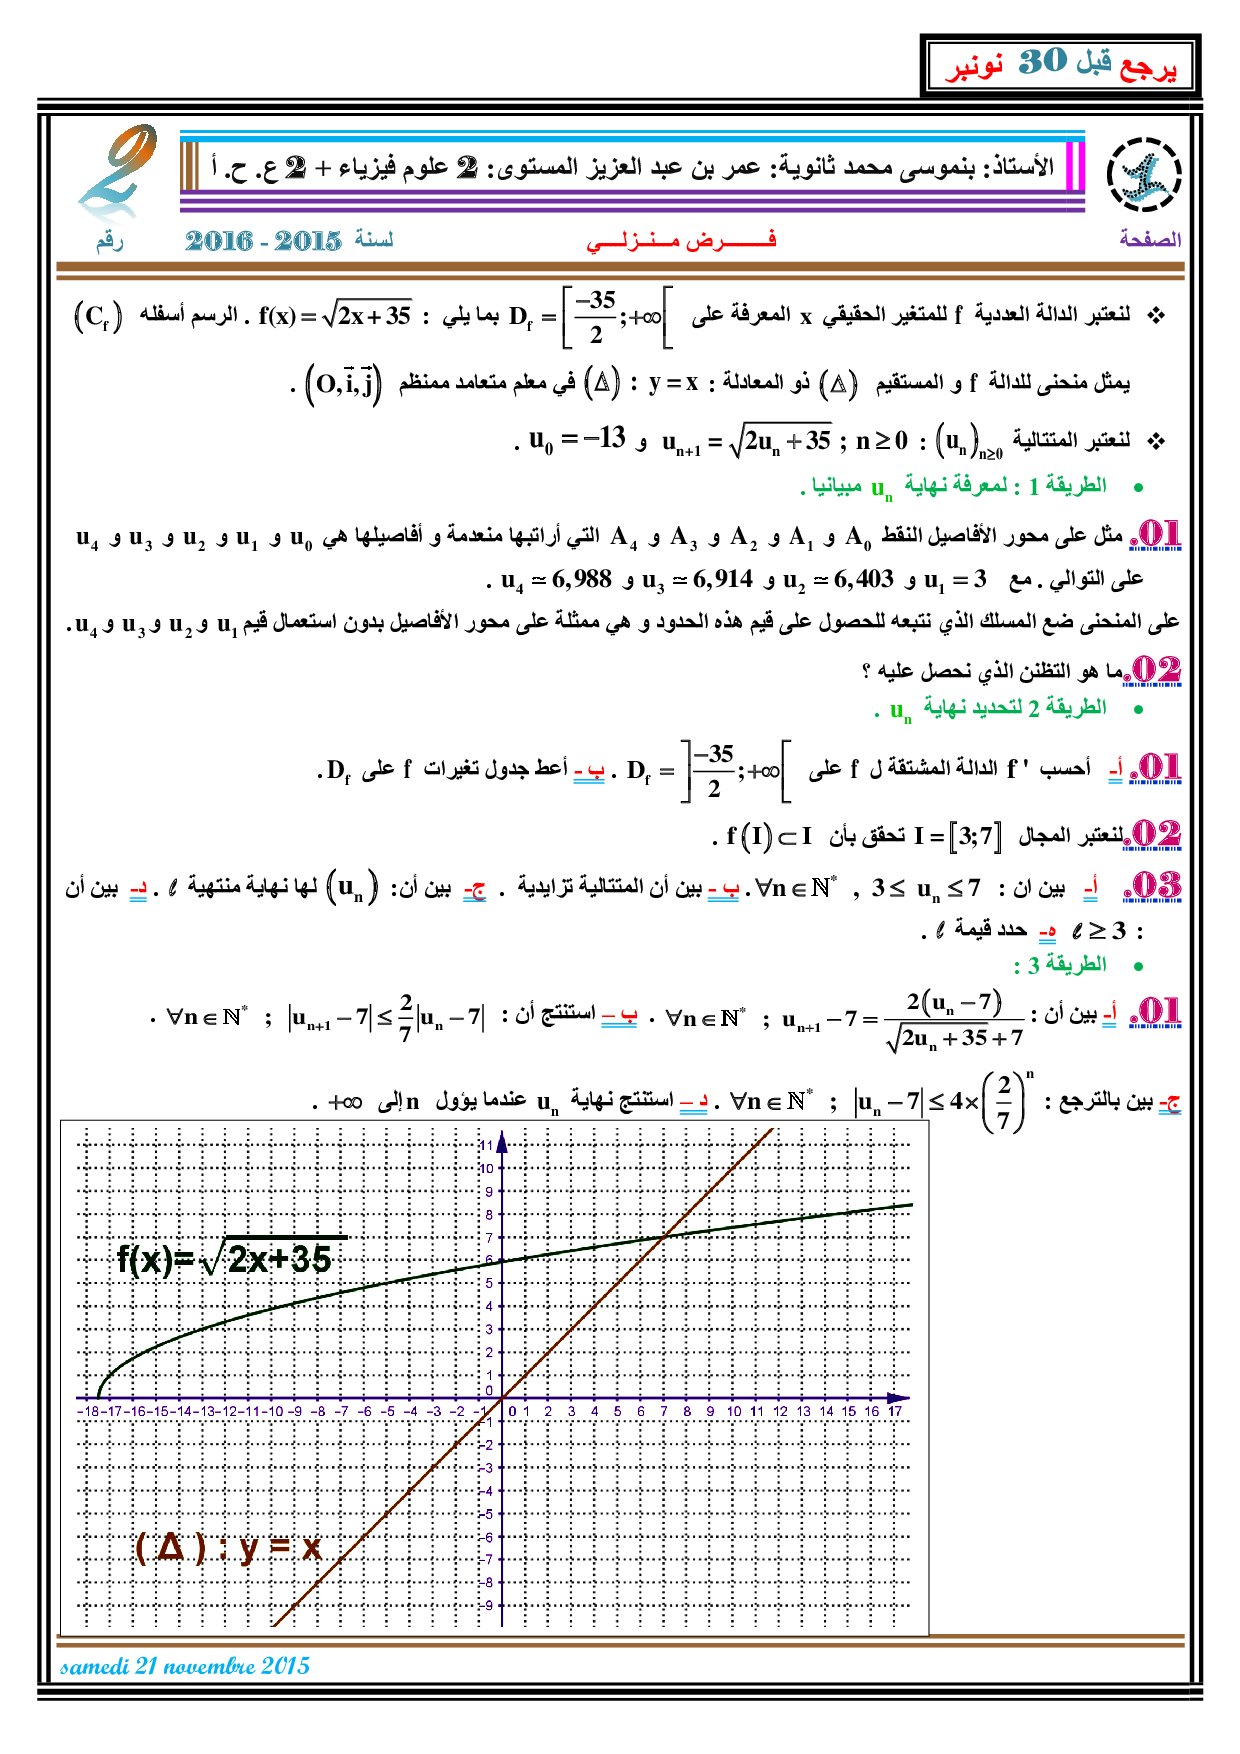 يرجع قبل 30 نونبر
الأستاذ: بنموسى محمد ثانوية: عمر بن عبد العزيز المستوى: 2 علوم فيزياء + 2 ع. ح. أ
الصفحة فـــــرض مـــنـــزلـــي لسنة 2015 - 2016 رقم 2
❖ لنعتبر الدالة العددية f للمتغير الحقيقي x المعرفة على D_f = [-35/2 ; +∞[ بما يلي : f(x) = √(2x+35) . الرسم أسفله (C_f)
يمثل منحنى للدالة f و المستقيم (Δ) ذو المعادلة : y = x : (Δ) في معلم متعامد ممنظم (O, i, j) .
❖ لنعتبر المتتالية (u_n)_{n≥0} : u_{n+1} = √(2u_n + 35) ; n ≥ 0 و u_0 = −13 .
• الطريقة 1 : لمعرفة نهاية u_n مبيانيا .
01. مثل على محور الأفاصيل النقط A_0 و A_1 و A_2 و A_3 و A_4 التي أراتبها منعدمة و أفاصيلها هي u_0 و u_1 و u_2 و u_3 و u_4
على التوالي . مع u_1 = 3 و u_2 ≃ 6,403 و u_3 ≃ 6,914 و u_4 ≃ 6,988 .
على المنحنى ضع المسلك الذي نتبعه للحصول على قيم هذه الحدود و هي ممثلة على محور الأفاصيل بدون استعمال قيم u_1 و u_2 و u_3 و u_4 .
02. ما هو التظنن الذي نحصل عليه ؟
• الطريقة 2 لتحديد نهاية u_n .
01. أ- أحسب f ' الدالة المشتقة ل f على D_f = ]-35/2 ; +∞[ . ب - أعط جدول تغيرات f على D_f .
02. لنعتبر المجال I = [3;7] تحقق بأن f(I) ⊂ I .
03. أ- بين ان : ∀n ∈ ℕ* , 3 ≤ u_n ≤ 7 . ب - بين أن المتتالية تزايدية . ج- بين أن: (u_n) لها نهاية منتهية ℓ . د- بين أن
: ℓ ≥ 3 ه- حدد قيمة ℓ .
• الطريقة 3 :
01. أ- بين أن : ∀n ∈ ℕ* ; u_{n+1} − 7 = 2(u_n − 7) / (√(2u_n + 35) + 7) . ب – استنتج أن : ∀n ∈ ℕ* ; |u_{n+1} − 7| ≤ 2/7 |u_n − 7| .
ج- بين بالترجع : ∀n ∈ ℕ* ; |u_n − 7| ≤ 4×(2/7)^n . د – استنتج نهاية u_n عندما يؤول n إلى +∞ .
11
10
9
8
7
6
5
4
3
2
1
0
f(x)=√2x+35
-18 -17 -16 -15 -14 -13 -12 -11 -10 -9 -8 -7 -6 -5 -4 -3 -2 -1 0 1 2 3 4 5 6 7 8 9 10 11 12 13 14 15 16 17
-1
-2
-3
-4
-5
-6
-7
-8
-9
( Δ ) : y = x
samedi 21 novembre 2015